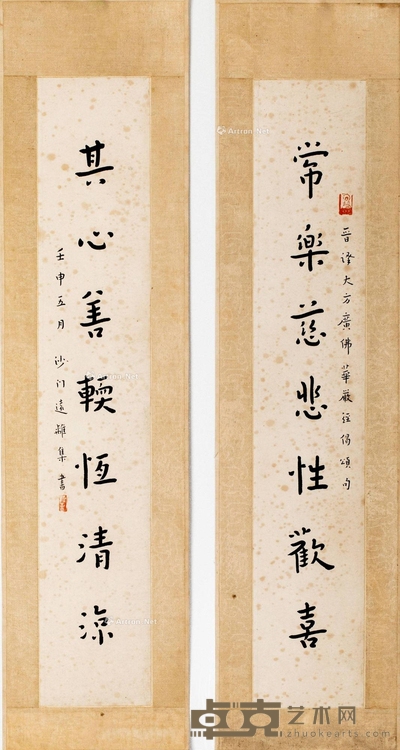 常樂慈悲性歡喜
晉譯大方廣佛華嚴經偈頌句
其心善輭恆清涼
壬申五月沙門遠離集書
Artron.Net
卓克艺术网
zhuokearts.com